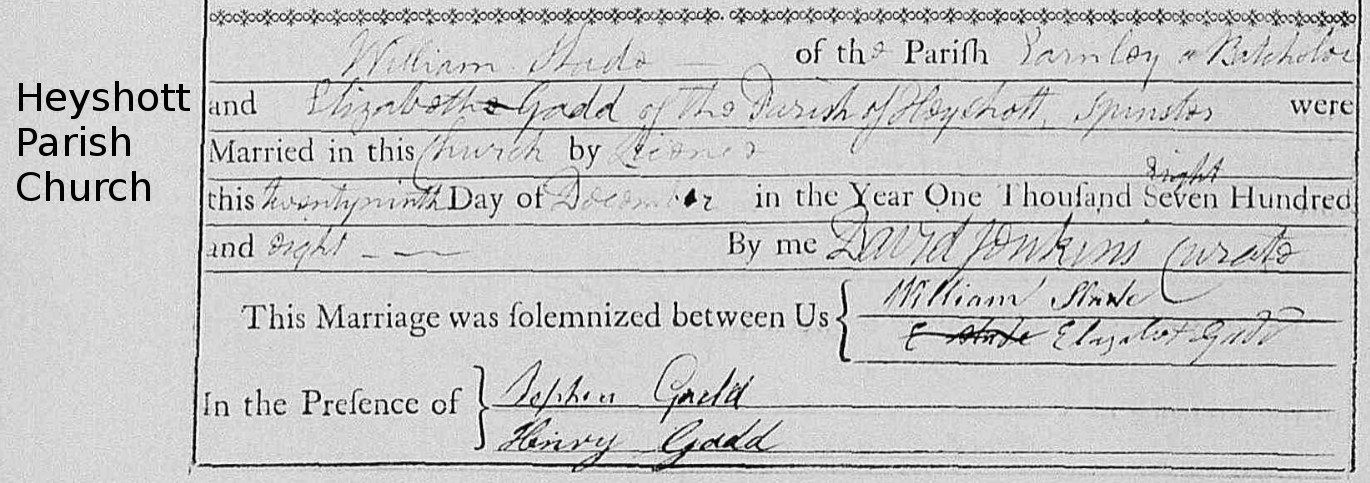 Heyshott
Parish
Church
William Slade — of the Pariſh Earnley a Batchelor
and Elizabeth Gadd of the Parish of Heyshott, Spinster were
Married in this Church by Licence
eight
this twentyninth Day of December in the Year One Thouſand Seven Hundred
and eight — — By me David Jenkins Curate
This Marriage was ſolemnized between Us { William Slade
E Slade Elizabet Gadd
In the Preſence of } Stephen Gadd
Henry Gadd